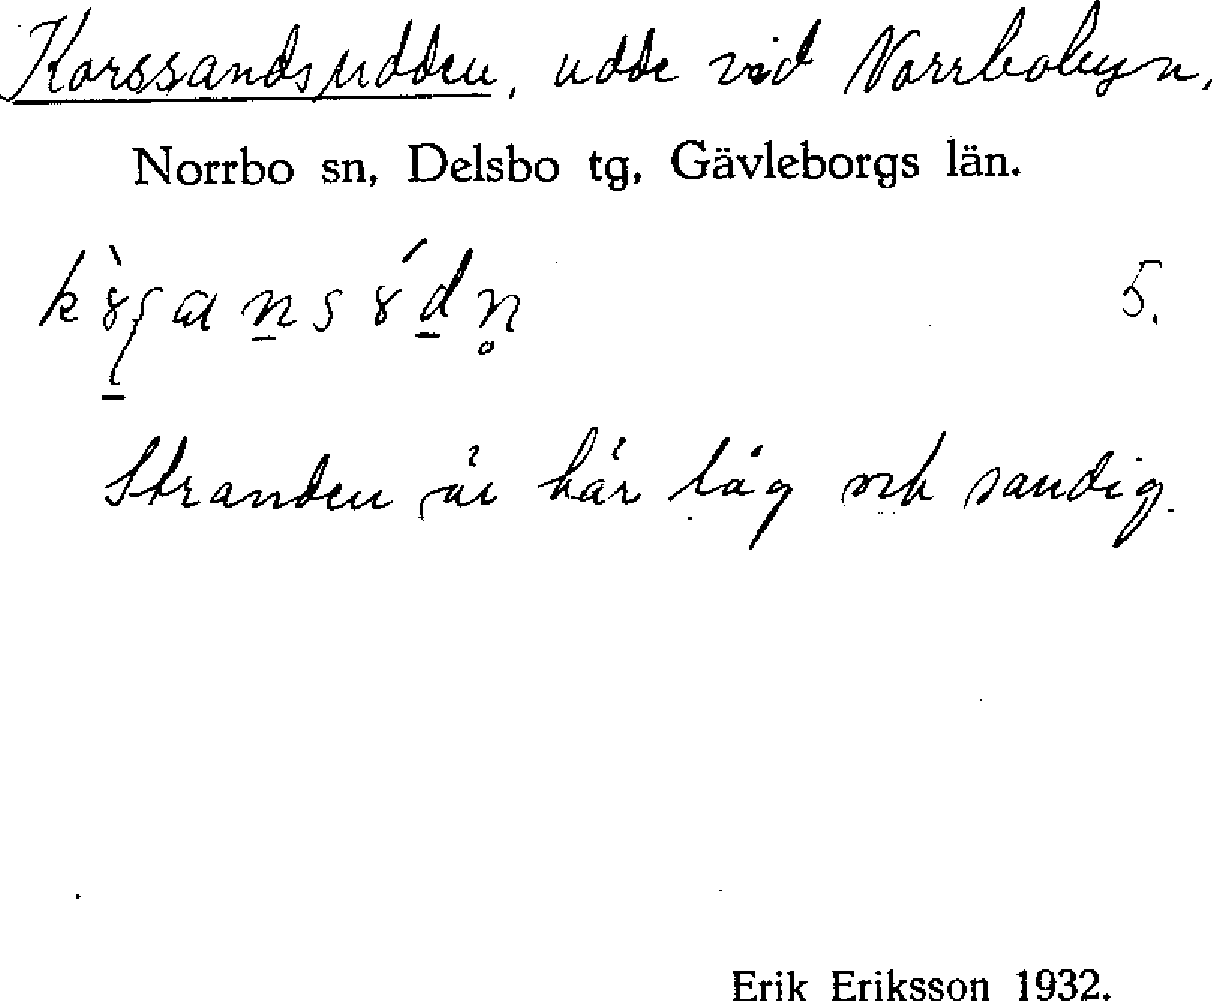 Korssandsudden, udde vid Norrbobyn.
Norrbo sn, Delsbo tg, Gävleborgs län.
5.
Stranden är här låg och sandig.
Erik Eriksson 1932.